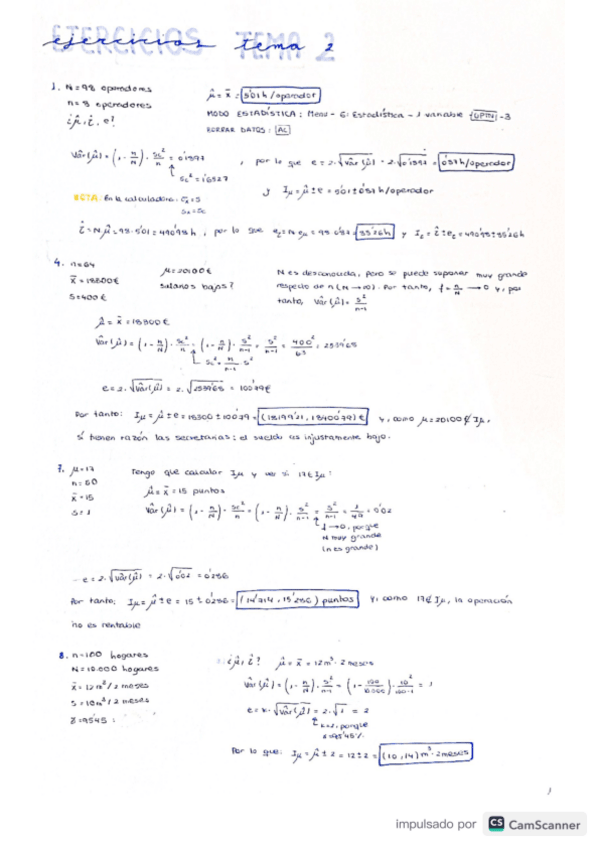 EJERCICIOS TEMA 2
ejercicios tema 2
1. N=98 operadores
n=8 operadores
¿μ̂, τ̂, e?
μ̂ = x̄ = 5'01 h/operador
MODO ESTADÍSTICA: Menu - 6: Estadística - 1 variable - OPTN - 3
BORRAR DATOS: AC
Vâr(μ̂) = (1 - n/N) · sc²/n = 0'1897, por lo que e = 2·√Vâr(μ̂) = 2·√0'1897 = 0'87h/operador
NOTA: En la calculadora:
y Iμ = μ̂ ± e = 5'01 ± 0'87 h/operador
τ̂ = N·μ̂ = 98·5'01 = 490'98 h, por lo que
4. n=64
x̄=18300€
S=400€
μ=20100€
salarios bajos?
N es desconocida, pero se puede suponer muy grande
respecto de n (N→∞). Por tanto, f = n/N → 0 y, por
tanto, Vâr(μ̂) = s²/n-1
μ̂ = x̄ = 18300€
Vâr(μ̂) = (1 - n/N) · sc²/n = (1 - n/N) · s²/n-1 = s²/n-1 = 400²/63 = 2539'68
sc² = n/n-1 · s²
e = 2·√Vâr(μ̂) = 2·√2539'68 = 100'79€
Por tanto: Iμ = μ̂ ± e = 18300 ± 100'79 = (18199'21, 18400'79) € y, como μ = 20100 ∉ Iμ,
sí tienen razón las secretarias; el sueldo es injustamente bajo.
7. μ=17
n=50
x̄=15
S=1
Tengo que calcular Iμ y ver si 17∈Iμ:
μ̂ = x̄ = 15 puntos
Vâr(μ̂) = (1 - n/N) · sc²/n = (1 - n/N) · s²/n-1 = s²/n-1 = 1/49 = 0'02
f→0, porque
N muy grande
(n es grande)
e = 2·√Vâr(μ̂) = 2·√0'02 = 0'286
Por tanto: Iμ = μ̂ ± e = 15 ± 0'286 = (14'714, 15'286) puntos y, como 17∉Iμ, la operación
no es rentable
8. n=100 hogares
N=10.000 hogares
x̄=12m³/2 meses
S=10m³/2 meses
¿μ̂, τ̂? μ̂ = x̄ = 12m³·2 meses
Vâr(μ̂) = (1 - n/N) · s²/n-1 = (1 - 100/10000) · 10²/100-1 = 1
e = k·√Vâr(μ̂) = 2·√1 = 2
k=2, porque
Por lo que: Iμ = μ̂ ± 2 = 12 ± 2 = (10, 14) m³·2 meses
1
impulsado por CS CamScanner